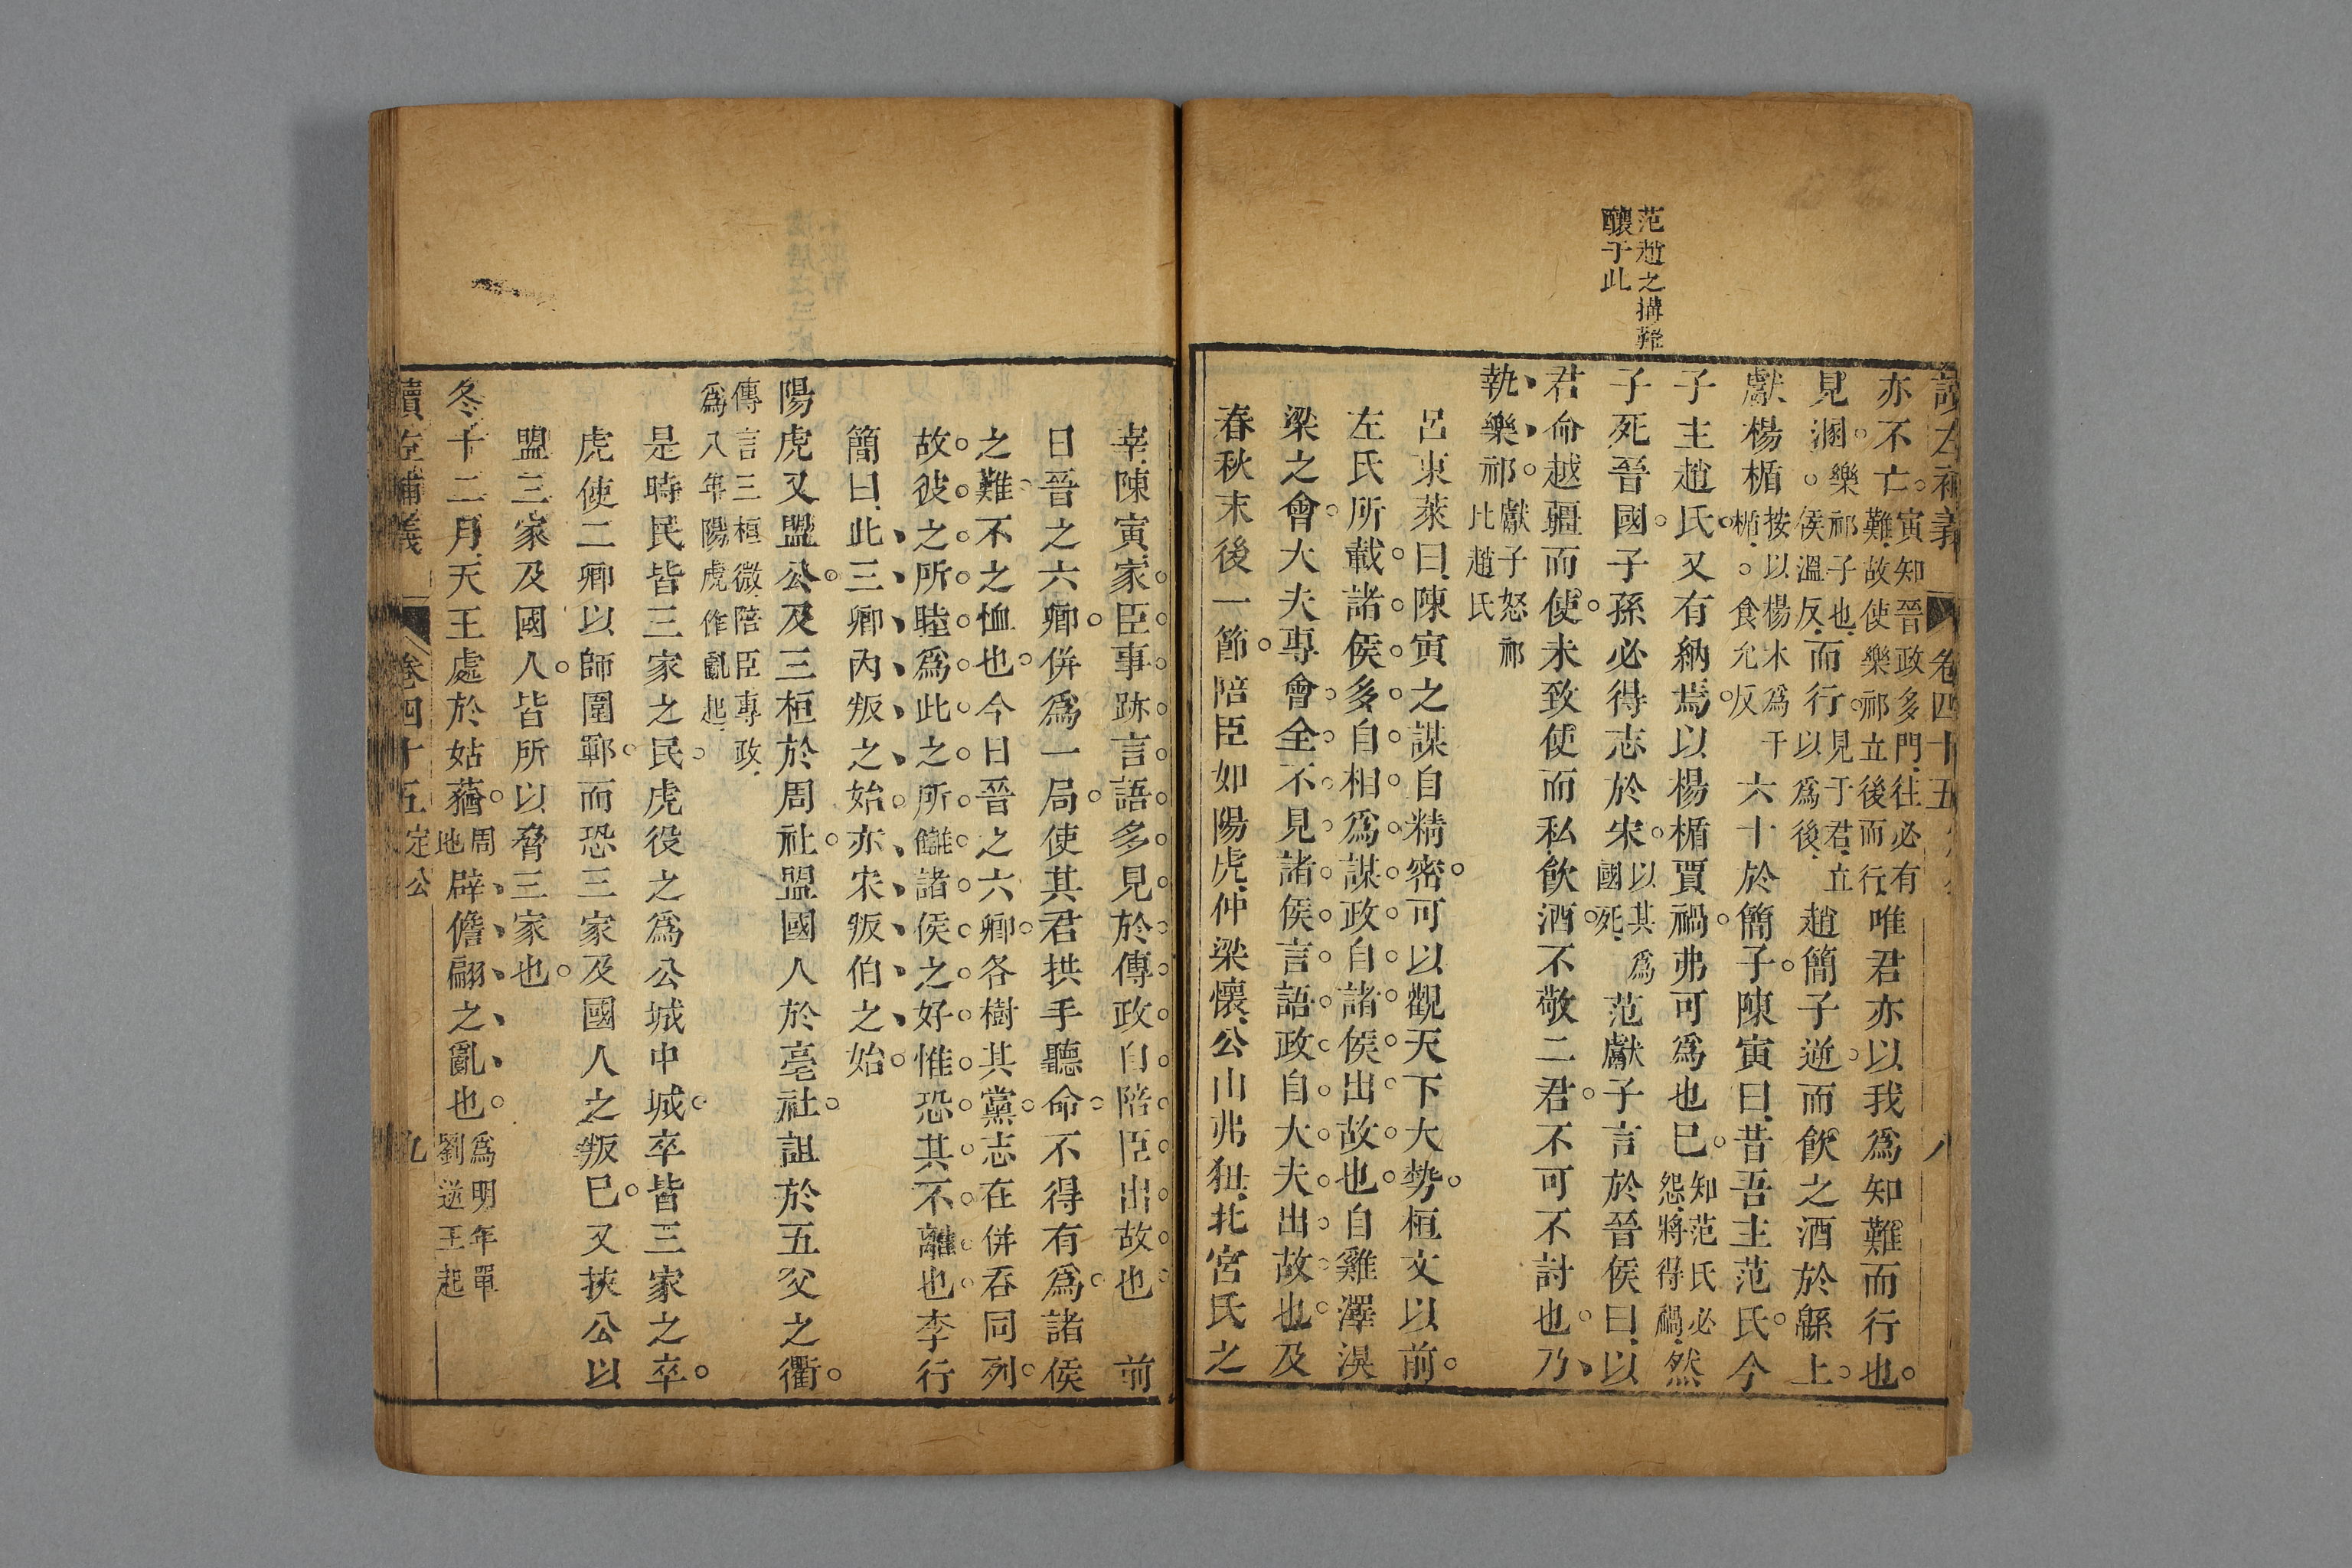 范趙之搆難
釀于此
讀左補義 卷四十五 八
亦不亡寅知晉政多門往必有難故使樂祁立後而行唯君亦以我爲知難而行也
見溷樂祁子也見于君立以爲後侯溫反而行趙簡子逆而飲之酒於緜上
獻楊楯按以楊木爲干楯食允反六十於簡子陳寅曰昔吾主范氏今
子主趙氏又有納焉以楊楯賈禍弗可爲也已知范氏必怨將得禍然
子死晉國子孫必得志於宋以其爲國死范獻子言於晉侯曰以
君命越疆而使未致使而私飲酒不敬二君不可不討也乃
執樂祁獻子怒祁比趙氏
呂東萊曰陳寅之謀自精密可以觀天下大勢桓文以前
左氏所載諸侯多自相爲謀政自諸侯出故也自雞澤湨
梁之會大夫專會全不見諸侯言語政自大夫出故也及
春秋末後一節陪臣如陽虎仲梁懷公山弗狃北宮氏之
宰陳寅家臣事跡言語多見於傳政自陪臣出故也 前
日晉之六卿併爲一局使其君拱手聽命不得有爲諸侯
之難不之恤也今日晉之六卿各樹其黨志在併吞同列
故彼之所睦爲此之所讎諸侯之好惟恐其不離也李行
簡曰此三卿內叛之始亦宋叛伯之始
陽虎又盟公及三桓於周社盟國人於亳社詛於五父之衢
傳言三桓微陪臣專政
爲八年陽虎作亂起
是時民皆三家之民虎役之爲公城中城卒皆三家之卒
虎使二卿以師圍鄆而恐三家及國人之叛已又挾公以
盟三家及國人皆所以脅三家也
冬十二月天王處於姑蕕周地辟儋翩之亂也爲明年單劉逆王起
讀左補義 卷四十五 定公 九